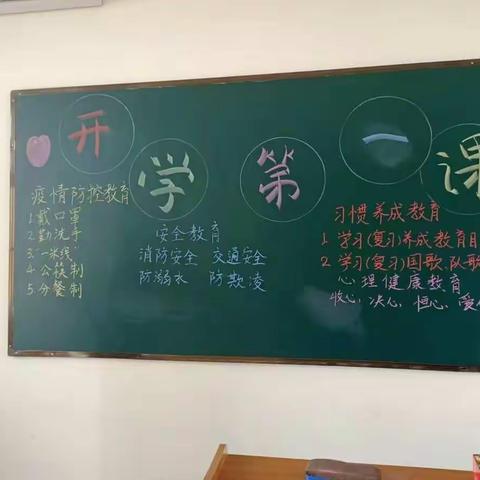 开学第一课
疫情防控教育
1.戴口罩
2.勤洗手
3.一米线
4.公筷制
5.分餐制
安全教育
消防安全 交通安全
防溺水 防欺凌
习惯养成教育
1.学习(复习)养成教育目
2.学习(复习)国歌、队歌
心理健康教育
收心、决心、恒心、爱